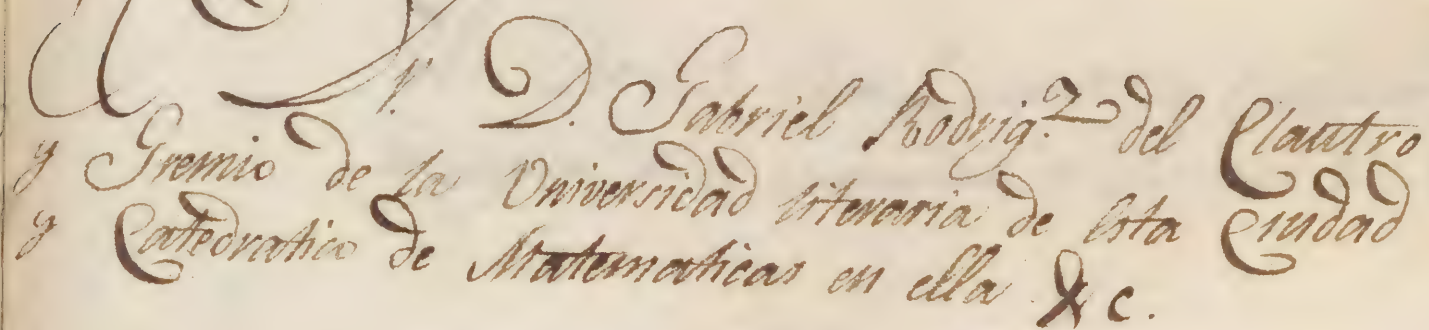 r. D. Gabriel Rodrig.z del Claustro
y Gremio de la Universidad literaria de esta Ciudad
y Catedratico de Matematicas en ella &c.